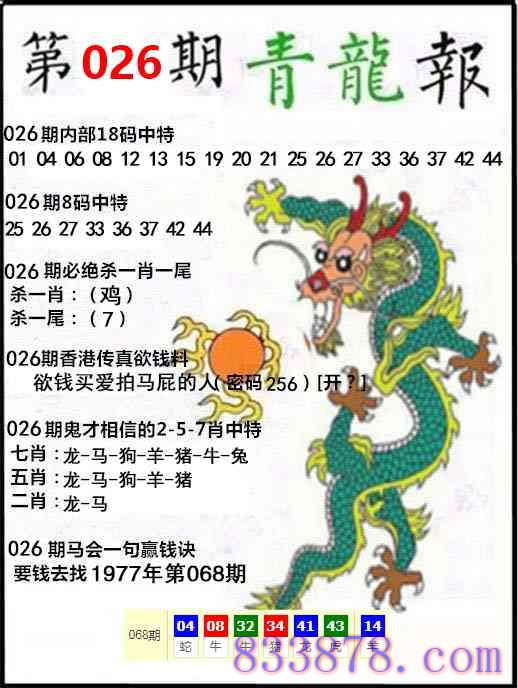 第026期 青龍報
026期内部18码中特
01 04 06 08 12 13 15 19 20 21 25 26 27 33 36 37 42 44
026期8码中特
25 26 27 33 36 37 42 44
026 期必绝杀一肖一尾
杀一肖：（鸡）
杀一尾：（7）
026期香港传真欲钱料
欲钱买爱拍马屁的人（密码256）[开？]
026期鬼才相信的2-5-7肖中特
七肖：龙-马-狗-羊-猪-牛-兔
五肖：龙-马-狗-羊-猪
二肖：龙-马
026 期马会一句赢钱诀
要钱去找1977年第068期
068期 04 08 32 34 41 43 14
蛇 牛 牛 猪 龙 虎 羊
833878.com